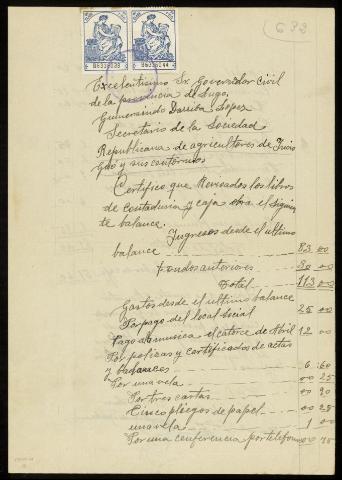 632
B6335038 B6335044
Excelentisimo Sr Governador Civil
de la provincia de Lugo,
Gumersindo Darriba Lopez
Secretario de la Sociedad
Republicana de agricultores de
y sus contornos
Certifico que Revisados los libros
de contaduria y caja obra el siguien
te balance.
Ingresos desde el ultimo
balance 83 00
fondos anteriores 30 00
Total 113 00
Gastos desde el ultimo balance
Por pago del local social 25 00
Pago a la musica el catorce de Abril 12 00
Por polizas y certificados de actas
y balances 6 60
Por una vela 00 25
Por tres cartas 00 90
Cinco pliegos de papel 00 25
una vela 1 00
Por una conferencia por telefono 00